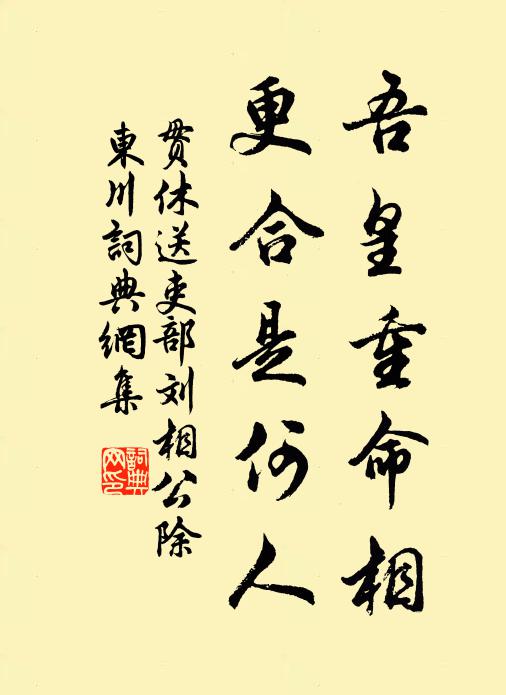 吾皇重命相
更合是何人
贯休送吏部刘相公除
東川詞典網集
詞典網印